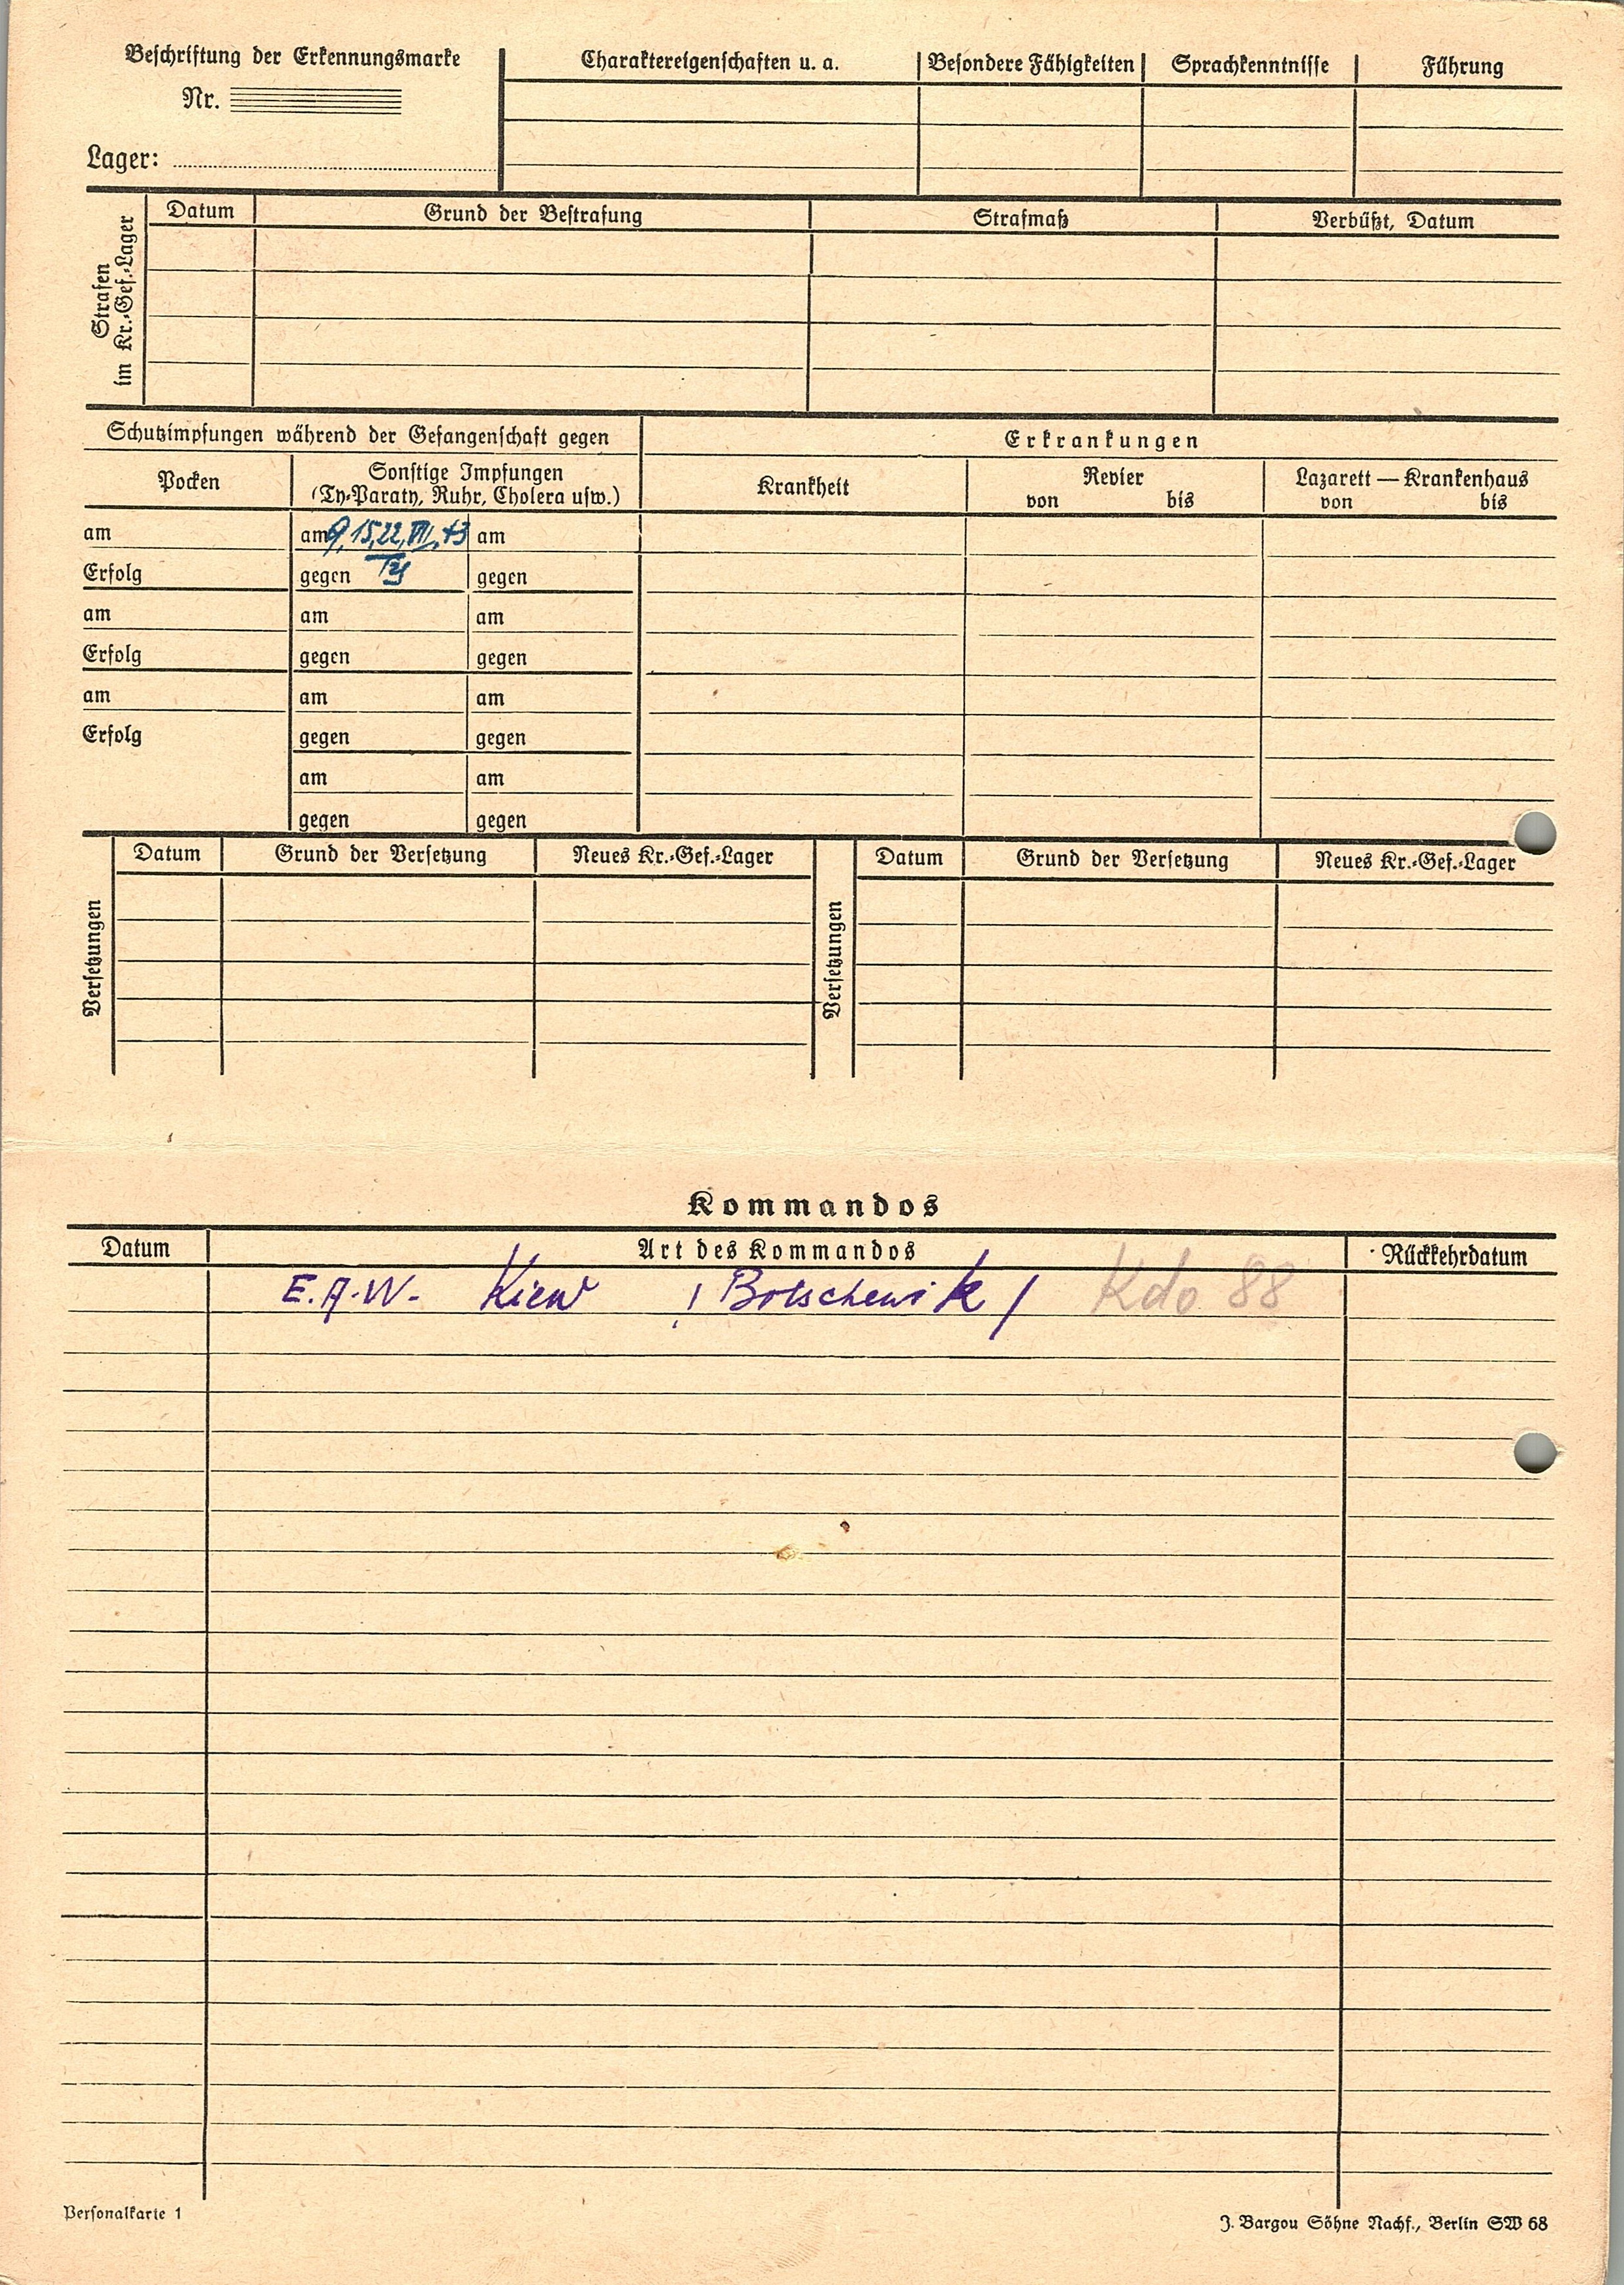 Beschriftung der Erkennungsmarke
Nr.
Lager:
Charaktereigenschaften u. a. Besondere Fähigkeiten Sprachkenntnisse Führung
Strafen
im Kr.-Gef.-Lager
Datum Grund der Bestrafung Strafmaß Verbüßt, Datum
Schutzimpfungen während der Gefangenschaft gegen Erkrankungen
Pocken Sonstige Impfungen
(Ty-Paraty, Ruhr, Cholera usw.)
Krankheit Revier Lazarett — Krankenhaus
von bis von bis
am am 9, 15, 22, VII, 43 am
Erfolg gegen Ty gegen
am am am
Erfolg gegen gegen
am am am
Erfolg gegen gegen
am am
gegen gegen
Versetzungen
Datum Grund der Versetzung Neues Kr.-Gef.-Lager
Versetzungen
Datum Grund der Versetzung Neues Kr.-Gef.-Lager
Kommandos
Datum Art des Kommandos Rückkehrdatum
E.A.W. Kiew / Bolschewik / Kdo 88
Personalkarte 1
J. Bargou Söhne Nachf., Berlin SW 68